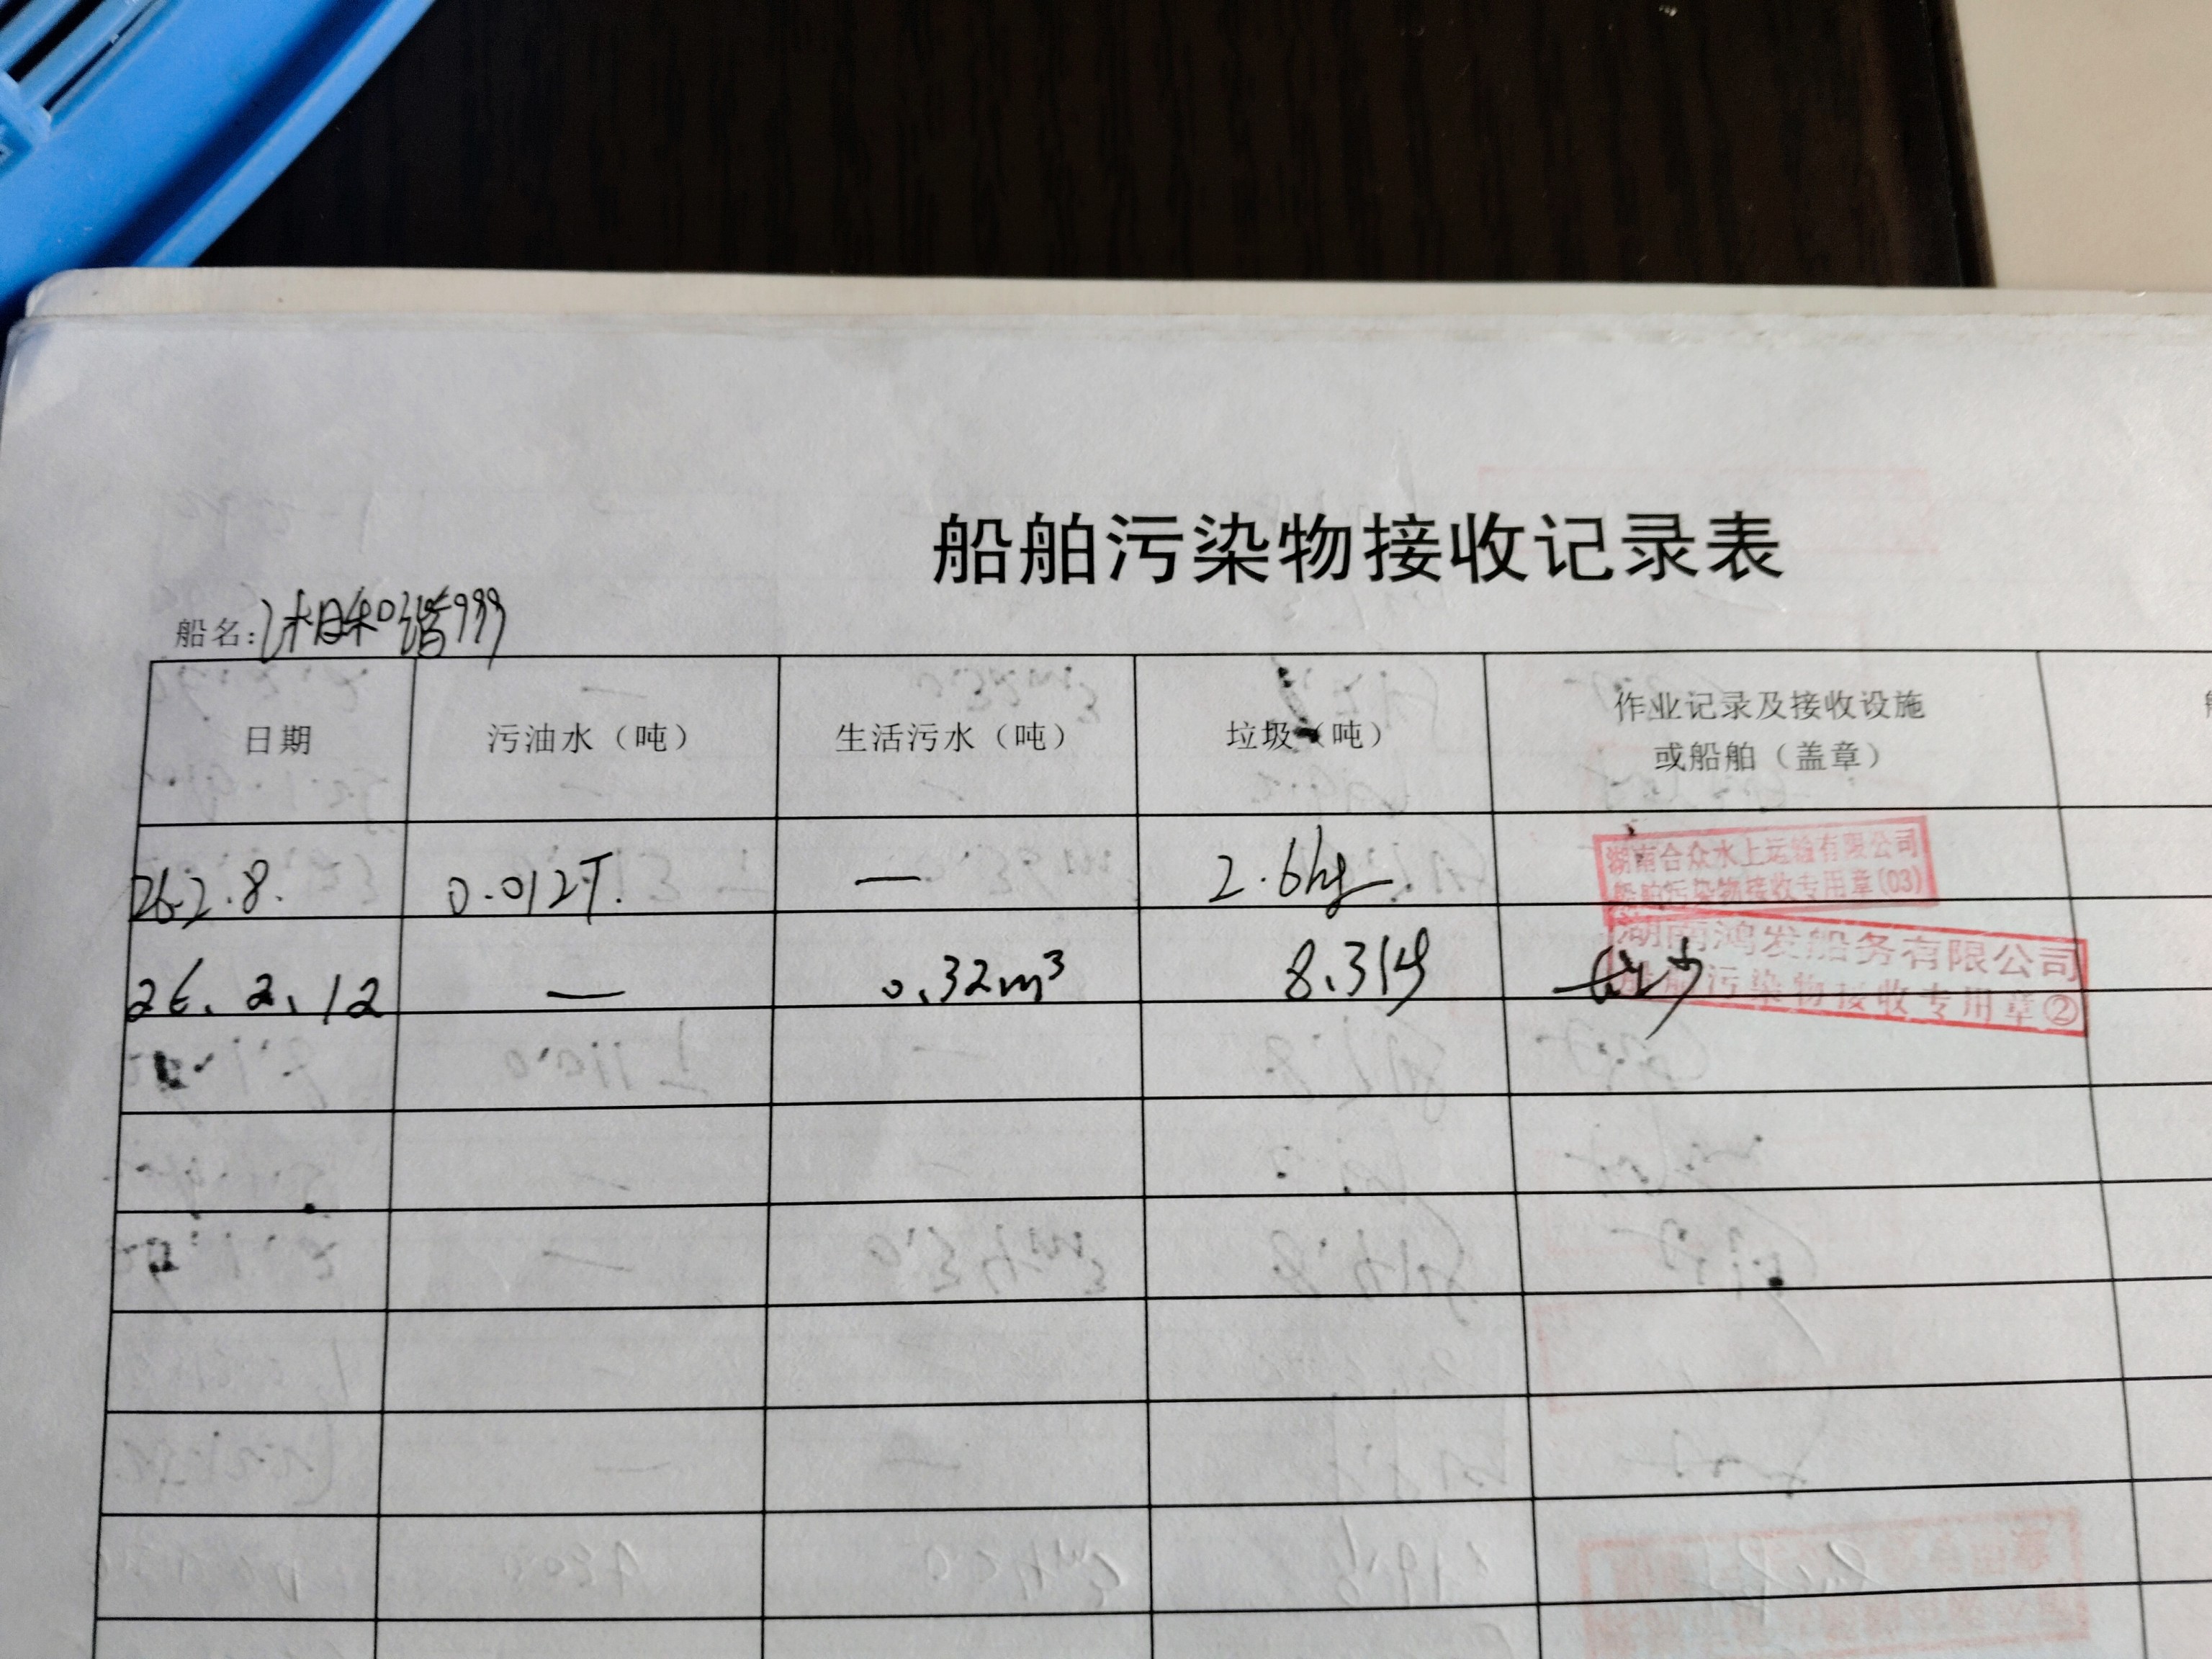 船舶污染物接收记录表
船名：湘和谐999
日期 污油水（吨） 生活污水（吨） 垃圾（吨） 作业记录及接收设施
或船舶（盖章）
26.2.8. 0.012T. — 2.6kg
湖南合众水上运输有限公司
船舶污染物接收专用章(03)
26.2.12 — 0.32m³ 8.31kg 长沙
湖南鸿发船务有限公司
船舶污染物接收专用章②